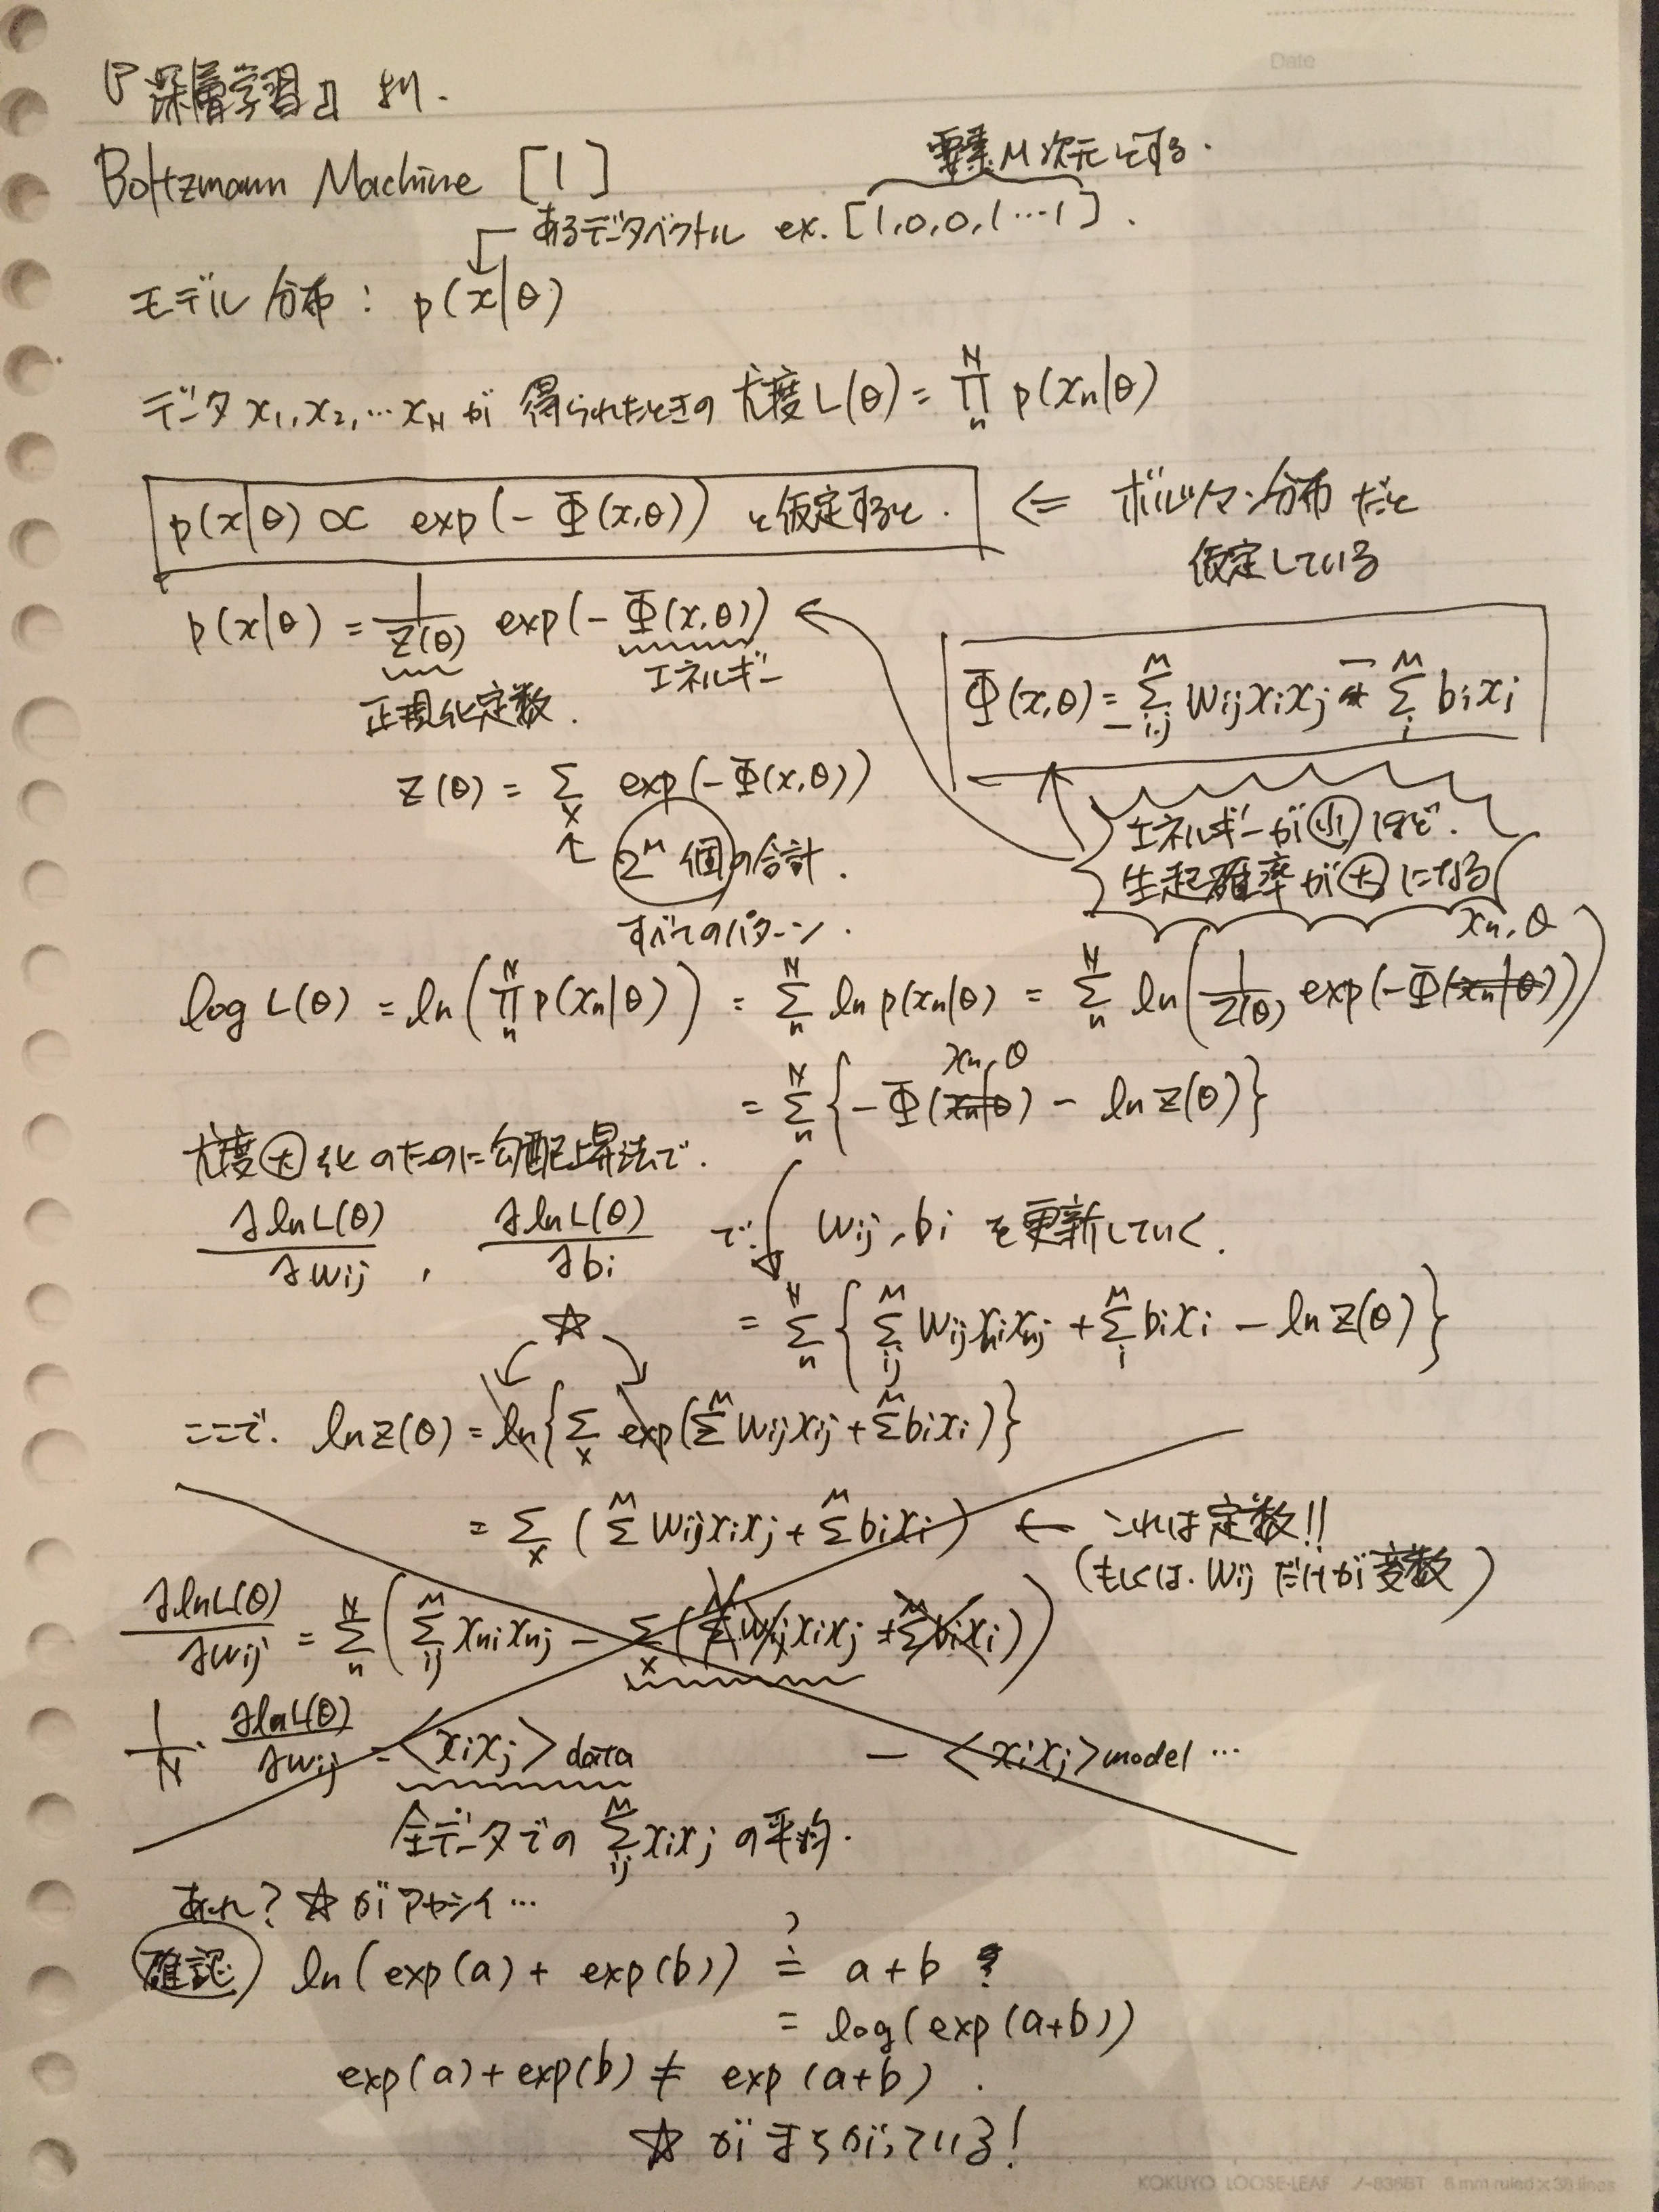 『深層学習』より.
Date
Boltzmann Machine [1]
要素M次元とする.
あるデータベクトル ex. [1,0,0,1…1].
モデル分布: p(x|θ)
データ x₁,x₂,…x_N が 得られたときの 尤度 L(θ) = ∏_n^N p(x_n|θ)
p(x|θ) ∝ exp(-Φ(x,θ)) と仮定すると.
⇐ ボルツマン分布だと
仮定している
p(x|θ) = 1/Z(θ) exp(-Φ(x,θ))
正規化定数.
エネルギー
Φ(x,θ) = -Σ_{i,j}^M w_ij x_i x_j - Σ_i^M b_i x_i
Z(θ) = Σ_x exp(-Φ(x,θ))
↑ 2^M個の合計.
すべてのパターン.
エネルギーが小ほど.
生起確率が大になる
log L(θ) = ln(∏_n^N p(x_n|θ)) = Σ_n^N ln p(x_n|θ) = Σ_n^N ln(1/Z(θ) exp(-Φ(x_n,θ)))
= Σ_n^N {-Φ(x_n,θ) - ln Z(θ)}
尤度大化のために勾配上昇法で.
∂lnL(θ)/∂w_ij , ∂lnL(θ)/∂b_i で. w_ij, b_i を更新していく.
☆
= Σ_n^N {Σ_ij^M w_ij x_ni x_nj + Σ_i^M b_i x_i - ln Z(θ)}
ここで. ln Z(θ) = ln{Σ_x exp(Σ^M w_ij x_ij + Σ^M b_i x_i)}
= Σ_x (Σ^M w_ij x_i x_j + Σ^M b_i x_i) ← これは定数!!
(もしくは. w_ij だけが変数)
∂lnL(θ)/∂w_ij = Σ_n^N (Σ_ij^M x_ni x_nj - Σ_x (Σ^M w_ij x_i x_j + Σ^M b_i x_i))
1/N · ∂lnL(θ)/∂w_ij = <x_i x_j> data - <x_i x_j> model …
全データでの Σ_ij^M x_i x_j の平均.
あれ? ☆がアヤシイ…
確認 ln(exp(a) + exp(b)) ≟ a+b ?
= log(exp(a+b))
exp(a) + exp(b) ≠ exp(a+b).
☆がまちがっている!
KOKUYO LOOSE-LEAF ノ-836BT 6 mm ruled × 36 lines